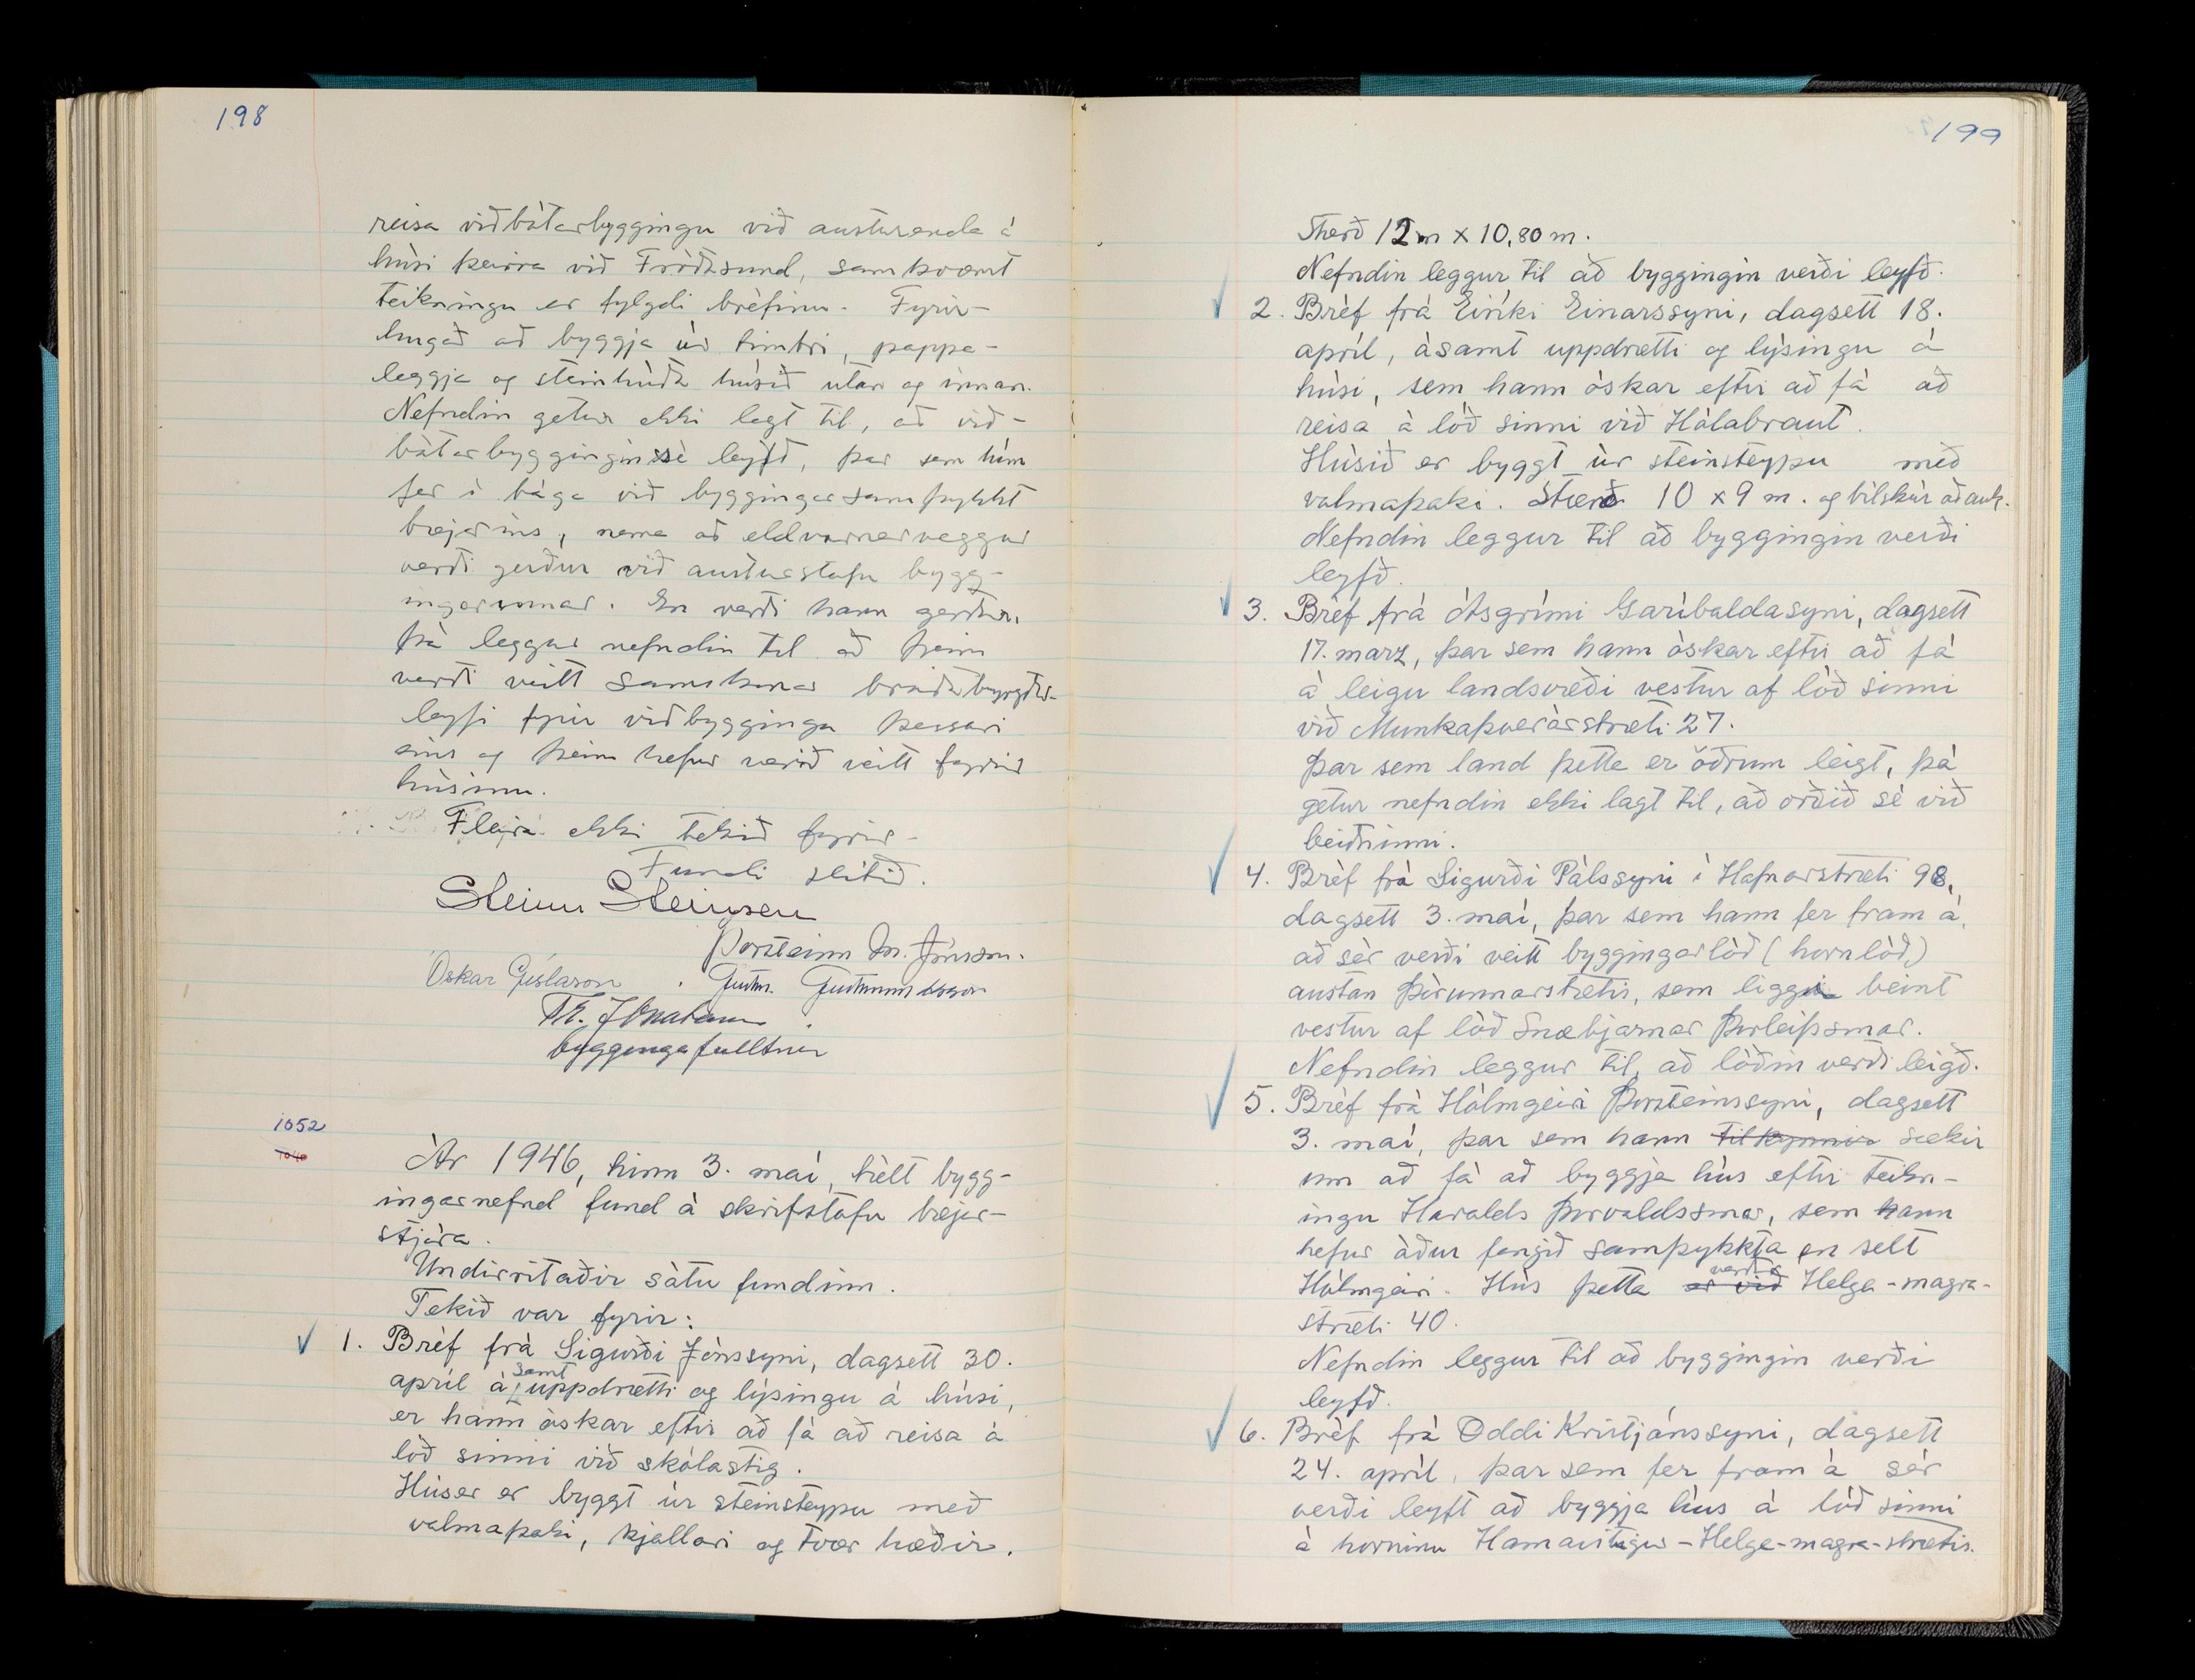 198
reisa viðbótarbyggingu við austurenda á
húsi þeirra við Fróðasund, samkvæmt
teikningu er fylgdi bréfinu. Fyrir-
hugað að byggja úr timbri, pappa-
leggja og steinhúða húsið utan og innan.
Nefndin getur ekki lagt til, að við-
bótarbyggingin sé leyfð, þar sem hún
fer í bága við byggingarsamþykkt
bæjarins, nema að eldvarnarveggur
verði gerður við austurstafn bygg-
ingarinnar. En verði hann gerður,
þá leggur nefndin til að þeim
verði veitt samskonar bráðabyrgða-
leyfi fyrir viðbyggingu þessari
eins og þeim hefur verið veitt fyrir
húsinu.
Fleira ekki tekið fyrir.
Fundi slitið.
Steinn Steinsen
Þorsteinn M. Jónsson.
Óskar Gíslason. Guðm. Guðmundsson
byggingafulltrúi
1052
Ár 1946, hinn 3. maí, hélt bygg-
ingarnefnd fund á skrifstofu bæjar-
stjóra.
Undirritaðir sátu fundinn.
Tekið var fyrir:
1. Bréf frá Sigurði Jónssyni, dagsett 30.
apríl ásamt uppdrætti og lýsingu á húsi,
er hann óskar eftir að fá að reisa á
lóð sinni við skólastig.
Húser er byggt úr steinsteypu með
valmaþaki, kjallari og tvær hæðir.
199
Stærð 12 m x 10,80 m.
Nefndin leggur til að byggingin verði leyfð.
2. Bréf frá Eiríki Einarssyni, dagsett 18.
apríl, ásamt uppdrætti og lýsingu á
húsi, sem hann óskar eftir að fá að
reisa á lóð sinni við Hólabraut.
Húsið er byggt úr steinsteypu með
valmaþaki. Stærð 10 x 9 m. og bílskúr að auk.
Nefndin leggur til að byggingin verði
leyfð.
3. Bréf frá Ásgrími Garíbaldasyni, dagsett
17. marz, þar sem hann óskar eftir að fá
á leigu landsvæði vestur af lóð sinni
við Munkaþverárstræti 27.
Þar sem land þetta er öðrum leigt, þá
getur nefndin ekki lagt til, að orðið sé við
beiðninni.
4. Bréf frá Sigurði Pálssyni í Hafnarstræti 98,
dagsett 3. maí, þar sem hann fer fram á,
að sér verði veitt byggingarlóð (hornlóð)
austan Þórunnarstrætis, sem liggi beint
vestur af lóð Snæbjarnar Þorleifssonar.
Nefndin leggur til, að lóðin verði leigð.
5. Bréf frá Hólmgeiri Þorsteinssyni, dagsett
3. maí, þar sem hann tilkynnir sækir
um að fá að byggja hús eftir teikn-
ingu Haralds Þorvaldssonar, sem hann
hefur áður fengið samþykkta en selt
Hólmgeiri. Hús þetta er við verði Helga-magra-
stræti 40.
Nefndin leggur til að byggingin verði
leyfð.
6. Bréf frá Oddi Kristjánssyni, dagsett
24. apríl, þar sem fer fram á sér
verði leyft að byggja hús á lóð sinni
á horninu Hamarstígur - Helga-magra-strætis.